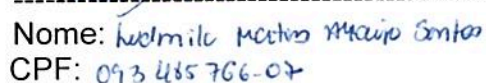 Nome: Ludmila Matos Araujo Santos
CPF: 093 485 766-07